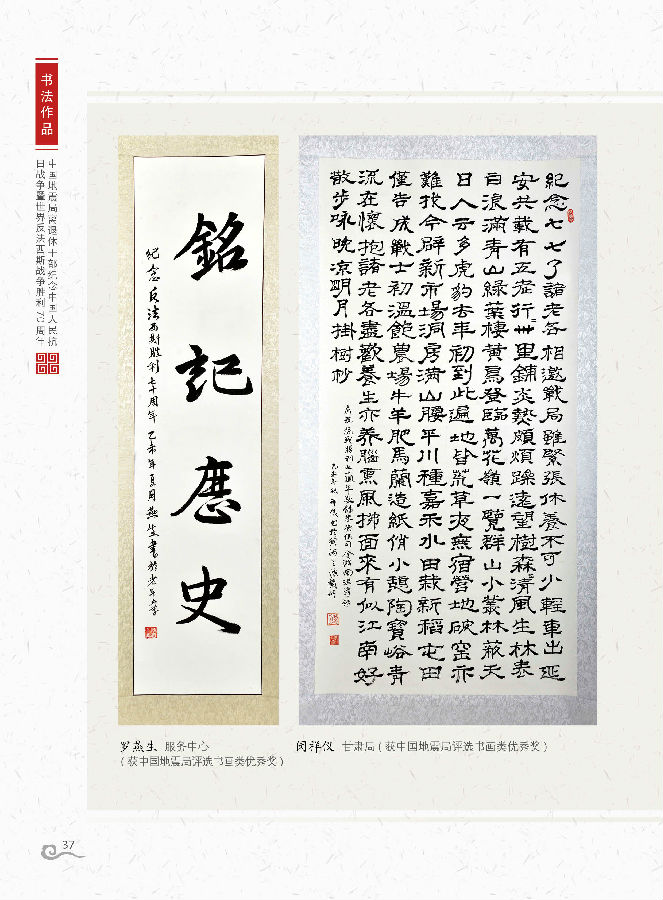 书法作品
中国地震局离退休干部纪念中国人民抗
日战争暨世界反法西斯战争胜利70周年
銘記歷史
纪念反法西斯胜利七十周年 乙未年夏月燕生書於老年大学
紀念七七了諸老各相邀戰局雖緊張休養不可少輕車出延
安共載有五老行=卅里鋪炎熱頗煩躁遠望樹森=清風生林表
白浪滿青山綠葉棲黃鳥登臨萬花嶺一覽群山小叢林蔽天
日人云多虎豹去年初到此遍地皆荒草夜無宿營地破窑亦
難找今辟新市場洞房满山腰平川種嘉禾水田栽新稻屯田
僅告成戰士初溫飽農場牛羊肥馬蘭造紙俏小憩陶寶峪青
流在懷抱諸老各盡歡養生亦养腦熏風拂面來有似江南好
散步咏晚凉明月掛樹杪
罗燕生 服务中心
（获中国地震局评选书画类优秀奖）
闵祥仪 甘肃局（获中国地震局评选书画类优秀奖）
37